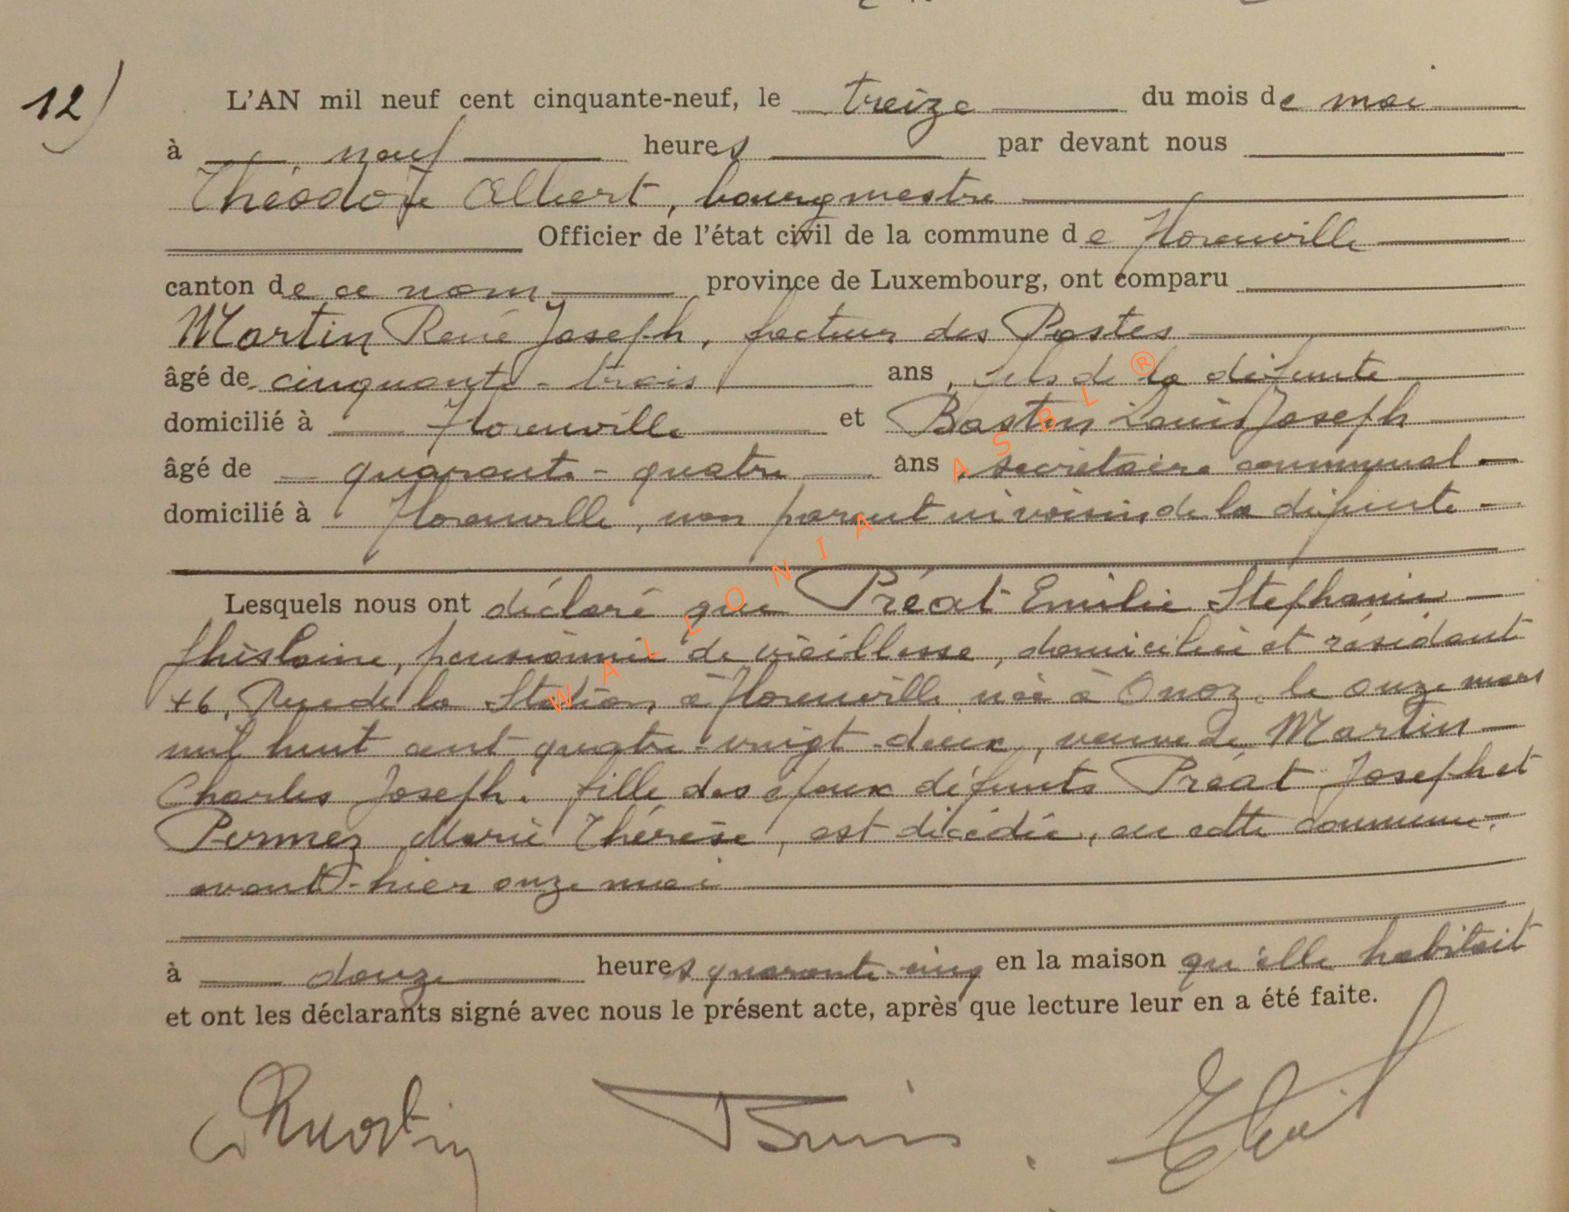 12)
L'AN mil neuf cent cinquante-neuf, le treize du mois de mai
à neuf heures par devant nous
Théodore Albert, bourgmestre
Officier de l'état civil de la commune de Florenville
canton de ce nom province de Luxembourg, ont comparu
Martin René Joseph, facteur des Postes
âgé de cinquante-trois ans, fils de la défunte
domicilié à Florenville et Bastin Louis Joseph
âgé de quarante-quatre ans, secrétaire communal
domicilié à Florenville, non parent ni voisin de la défunte
Lesquels nous ont déclaré que Préat Emilie Stephanie
Ghislaine, pensionnée de vieillesse, domiciliée et résidant
46, Rue de la Station à Florenville née à Onoz, le onze mars
mil huit cent quatre-vingt-deux, veuve de Martin
Charles Joseph, fille des époux défunts Préat Joseph et
Permez Marie Thérèse, est décédée, en cette commune,
avant-hier onze mai
à douze heures quarante-cinq en la maison qu'elle habitait
et ont les déclarants signé avec nous le présent acte, après que lecture leur en a été faite.
Martin
WALLONIA ASBL ®